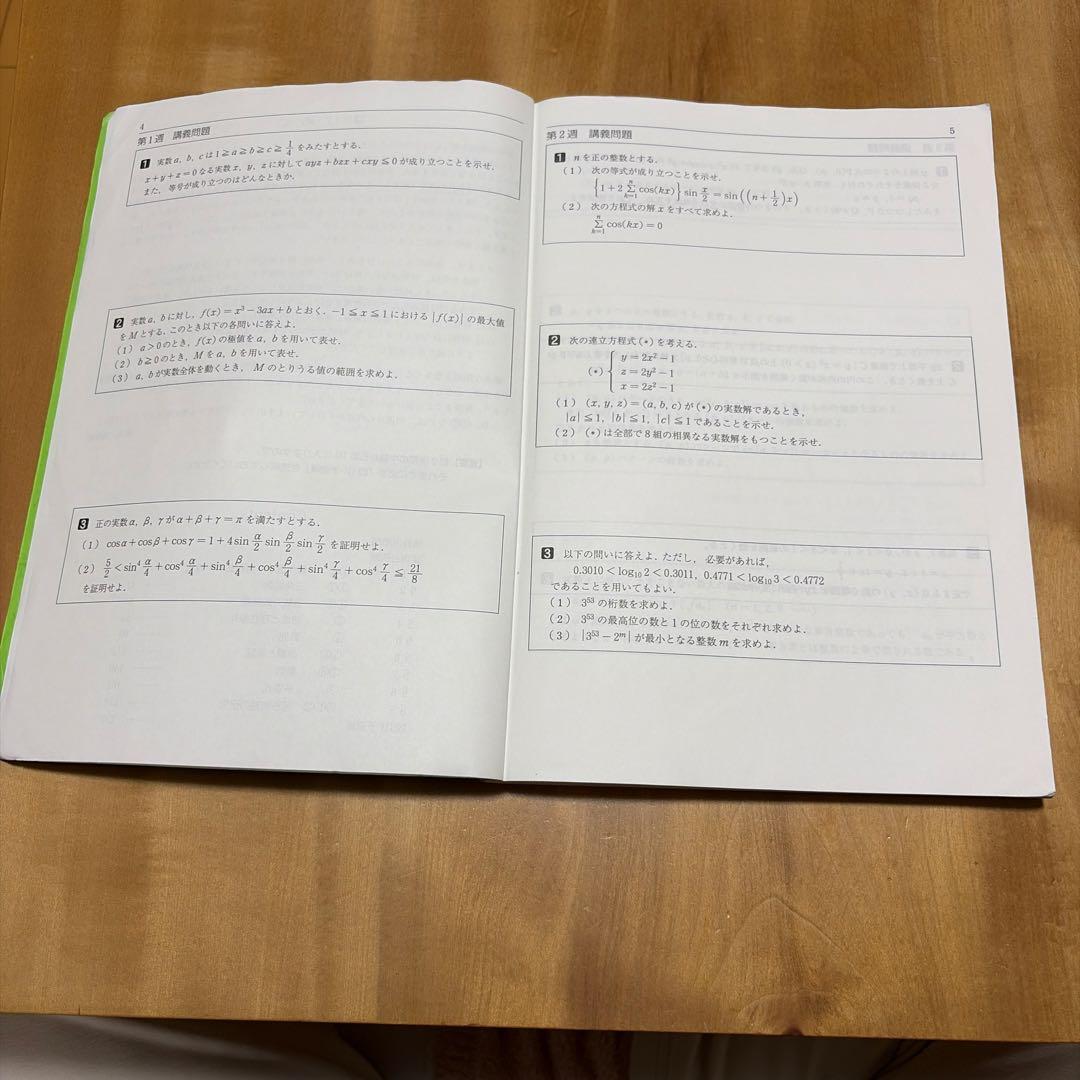 4
第1週 講義問題
1 実数 a, b, c は 1≧a≧b≧c≧1/4 をみたすとする.
x+y+z=0なる実数 x, y, z に対して ayz+bzx+cxy≦0が成り立つことを示せ.
また, 等号が成り立つのはどんなときか.
2 実数 a, b に対し, f(x)=x³−3ax+b とおく. −1≦x≦1における |f(x)| の最大値
を M とする. このとき以下の各問いに答えよ.
(1) a>0のとき, f(x)の極値を a, b を用いて表せ.
(2) b≧0のとき, M を a, b を用いて表せ.
(3) a, b が実数全体を動くとき, M のとりうる値の範囲を求めよ.
3 正の実数 α, β, γ が α+β+γ=π を満たすとする.
(1) cosα+cosβ+cosγ=1+4sin α/2 sin β/2 sin γ/2 を証明せよ.
(2) 5/2<sin⁴ α/4+cos⁴ α/4+sin⁴ β/4+cos⁴ β/4+sin⁴ γ/4+cos⁴ γ/4≦21/8
を証明せよ.
5
第2週 講義問題
1 n を正の整数とする.
(1) 次の等式が成り立つことを示せ.
{1+2Σ_{k=1}^{n}cos(kx)}sin x/2=sin((n+1/2)x)
(2) 次の方程式の解 x をすべて求めよ.
Σ_{k=1}^{n}cos(kx)=0
2 次の連立方程式(*)を考える.
y=2x²−1
(*){ z=2y²−1
x=2z²−1
(1) (x, y, z)=(a, b, c)が(*)の実数解であるとき,
|a|≦1, |b|≦1, |c|≦1であることを示せ.
(2) (*)は全部で8組の相異なる実数解をもつことを示せ.
3 以下の問いに答えよ. ただし, 必要があれば,
0.3010<log₁₀2<0.3011, 0.4771<log₁₀3<0.4772
であることを用いてもよい.
(1) 3⁵³ の桁数を求めよ.
(2) 3⁵³ の最高位の数と1の位の数をそれぞれ求めよ.
(3) |3⁵³−2ᵐ| が最小となる整数 m を求めよ.